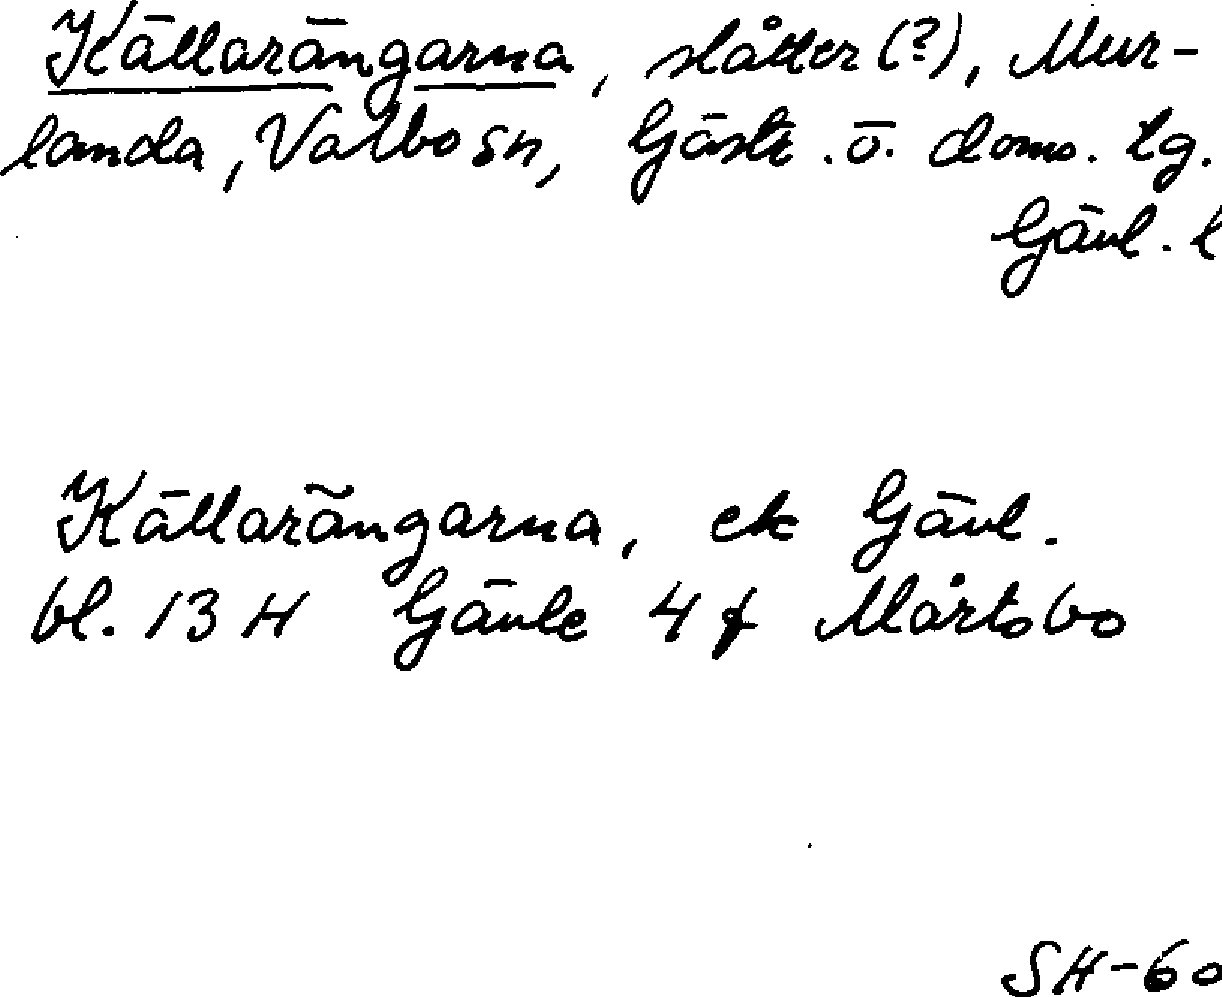 Källarängarna, slåtter (?), Mur-
landa, Valbo sn, Gästr. ö. doms. tg.
Gävl. l
Källarängarna, ek Gävl.
bl. 13 H Gävle 4 f Mårtsbo
SH-60